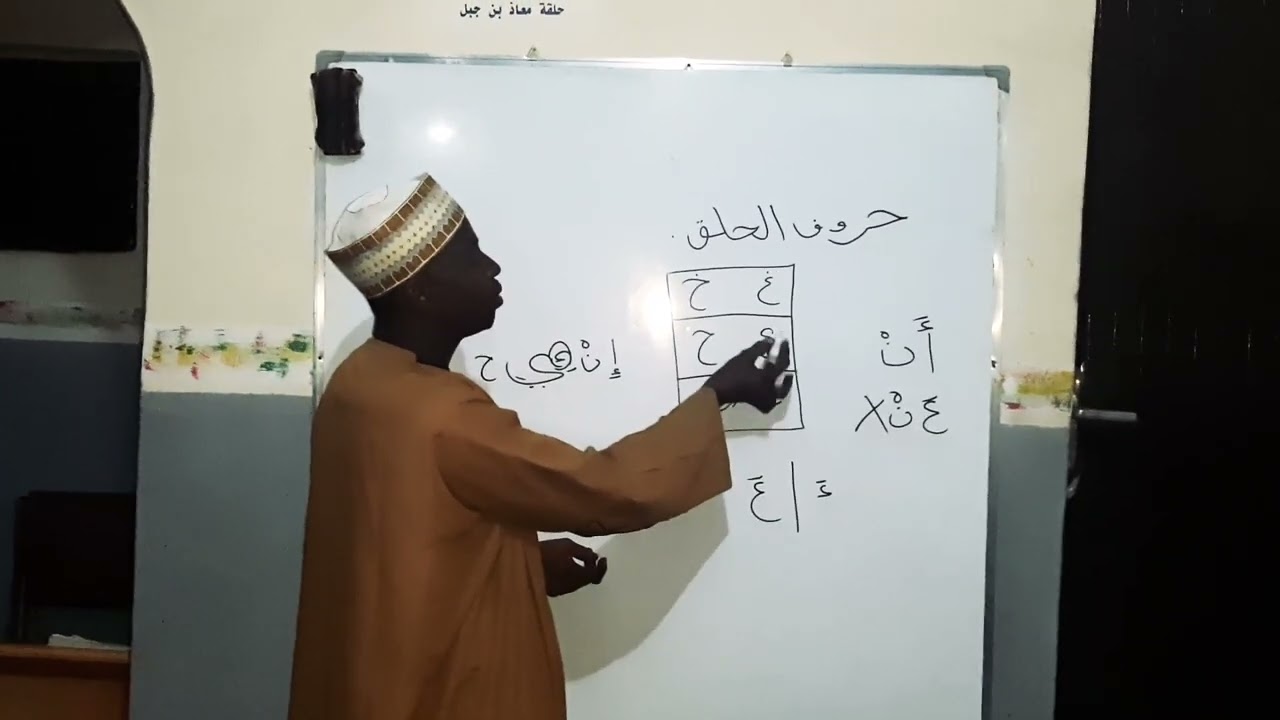 حلقة معاذ بن جبل
حروف الحلق.
غ خ
ح
أَنْ
عَنْ X
إِنْ
ح
ءَ | عَ